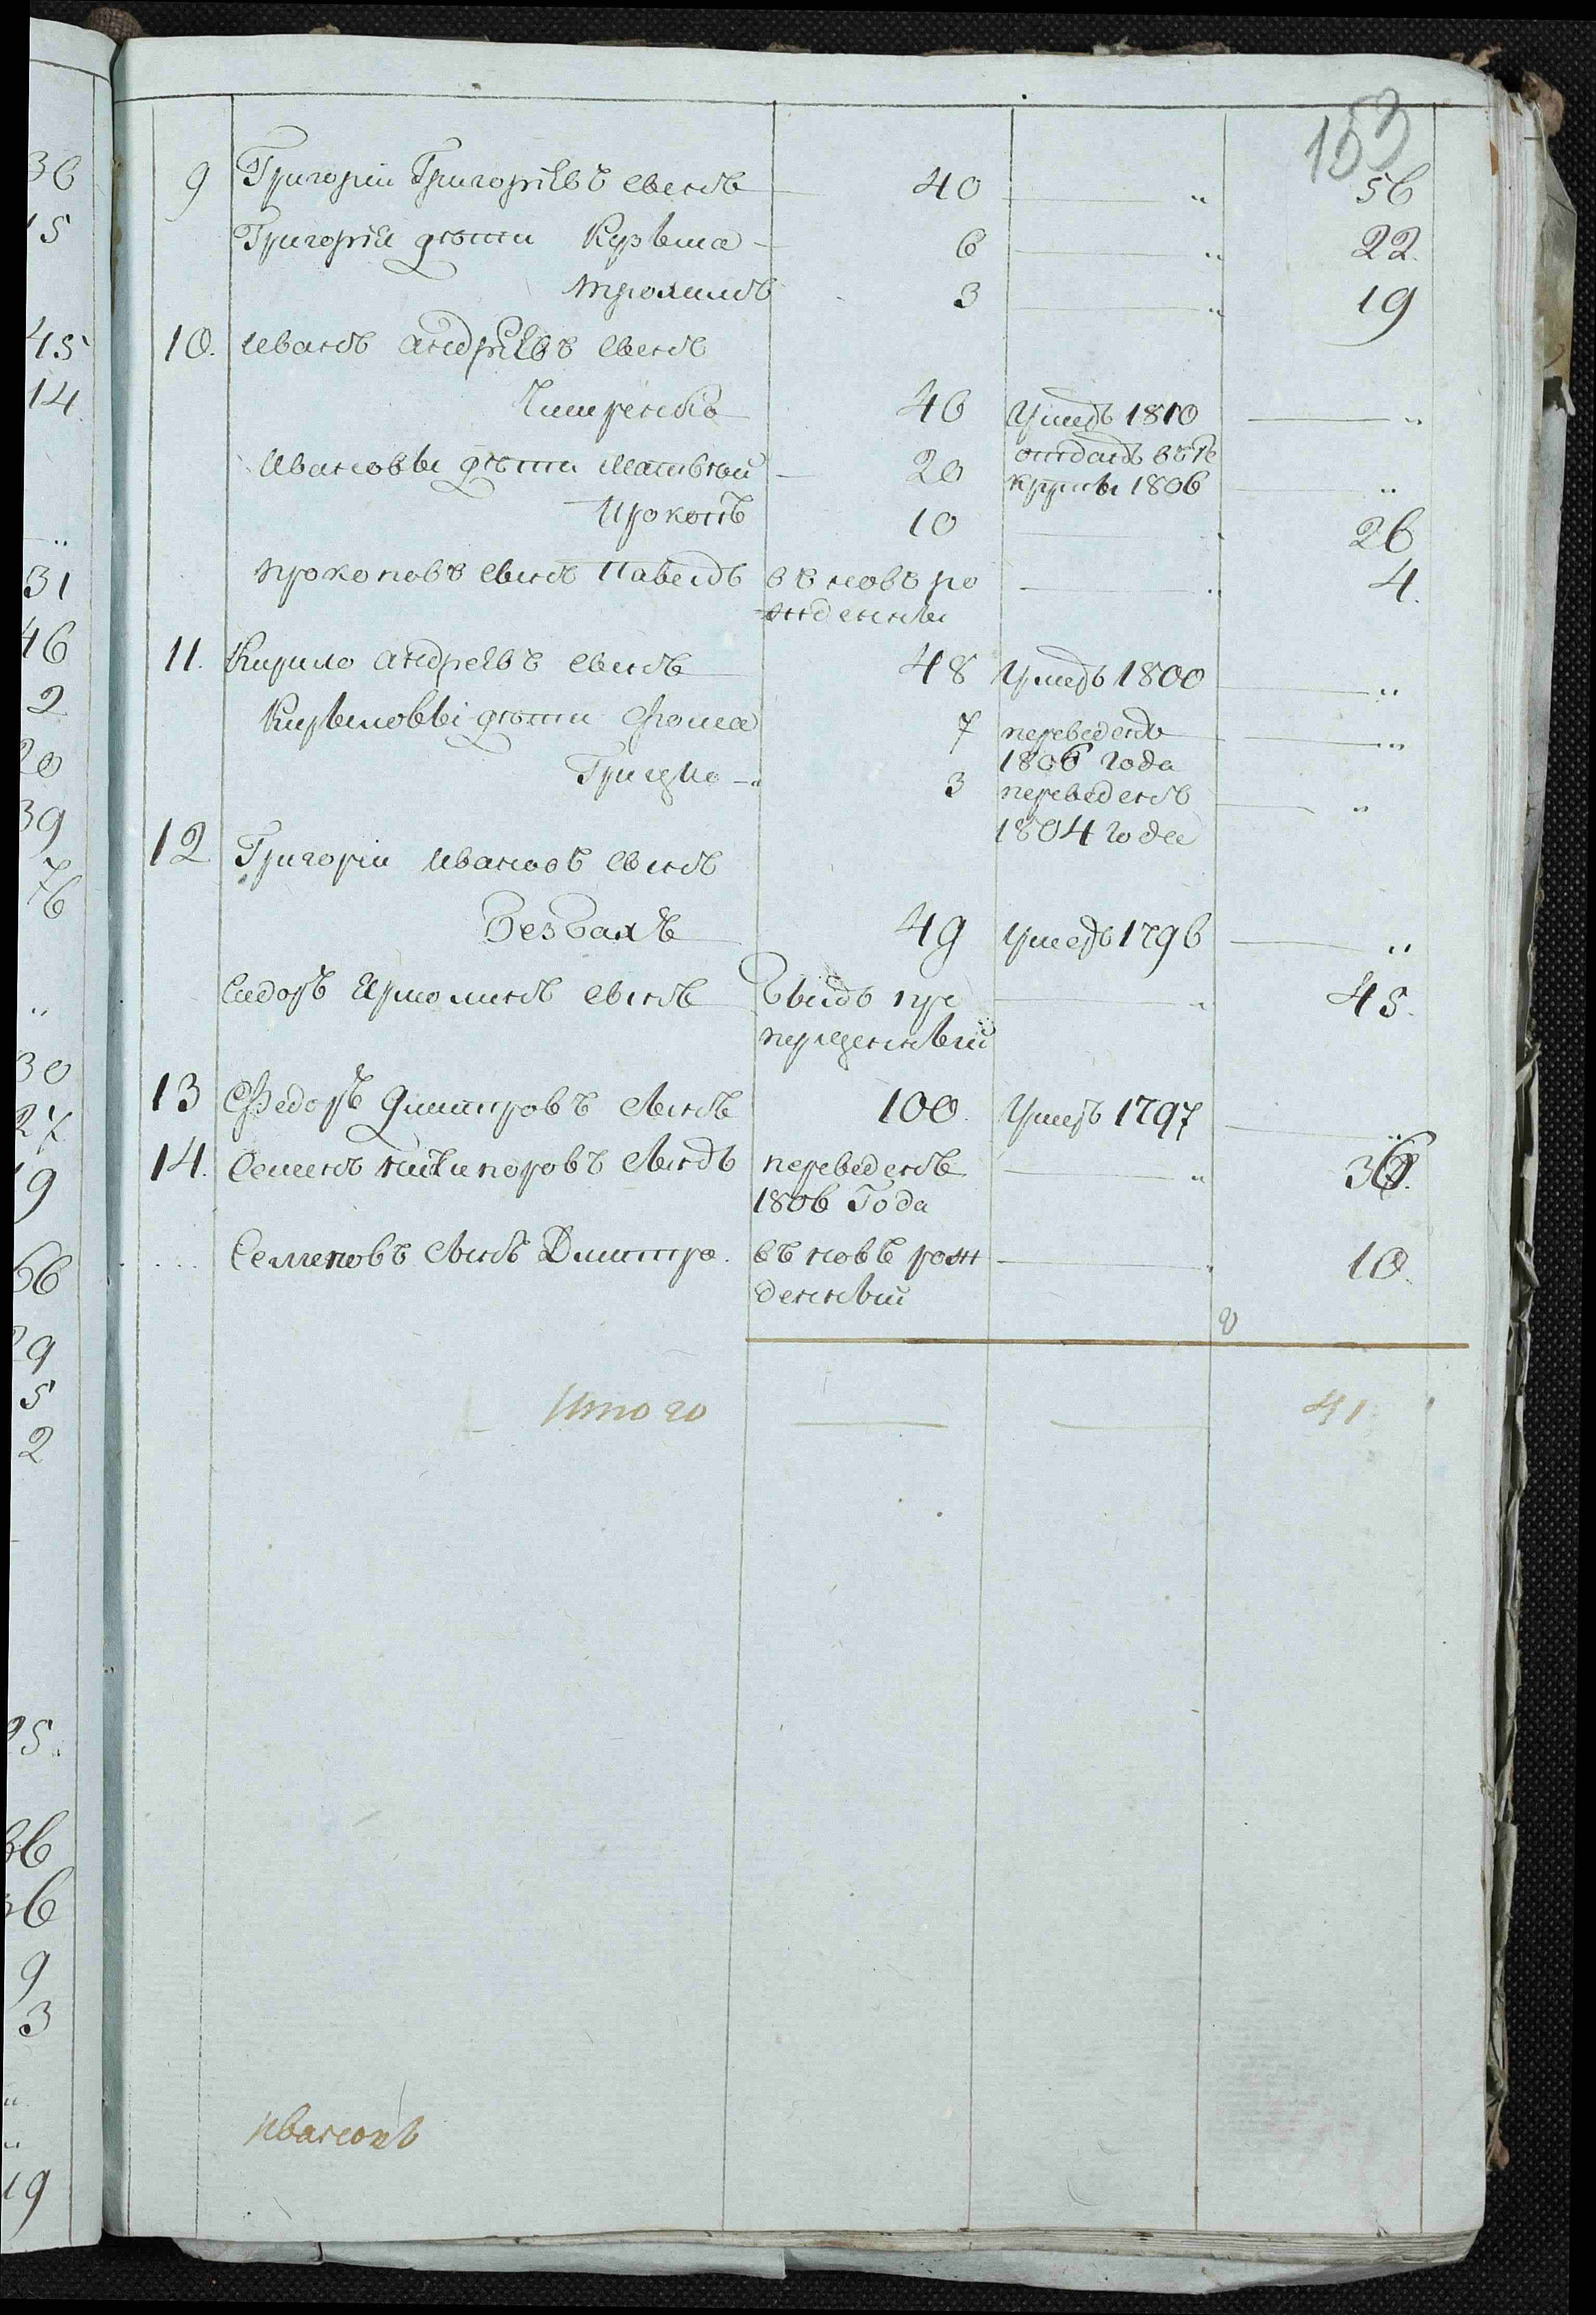 153
9 Григорій Григорієвъ сынъ 40 „ 56
Григорія дѣти Кузьма 6 „ 22.
Трохимъ 3 „ 19
10. Иванъ Андрѣевъ сынъ
46 Умеръ 1810 „
Ивановы дѣти Матвѣй 20 отданъ въ ре
круты 1806 „
Прокопъ 10 26
Прокоповъ сынъ Павелъ въ новѣ ро 4.
жденны
11. Кирило Андреевъ сынъ 48 Умеръ 1800 „
Кирыловы дѣти Фома 7 переведенъ „
1806 года
Грицко 3 переведенъ „
1804 года
12 Григорій Ивановъ сынъ
Безбахъ 49 Умеръ 1796 „
Сидоръ Ермолинъ сынъ былъ пре „ 45.
перщенный
13 Федоръ Дмитровъ сынъ 100. Умеръ 1797 „
14. Семенъ Никипоровъ сынъ переведенъ „ 36.
1806 Года
Семеновъ сынъ Дмитро. въ новѣ рож 10.
денный
Итого 41
36
15
45
14
„
31
46
2
20
39
76
„
30
27
19
66
29
5
2
25.
36
36
9
3
„
„
19